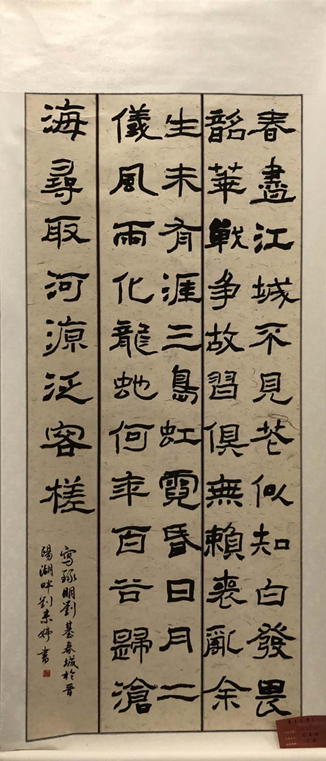 春盡江城不見花似知白發畏
韶華戰爭故習俱無賴喪亂余
生未有涯三島虹霓昏日月二
儀風雨化龍蛇何年百谷歸滄
海尋取河源泛客槎
寫明劉基春城於晉
陽湖畔劉書